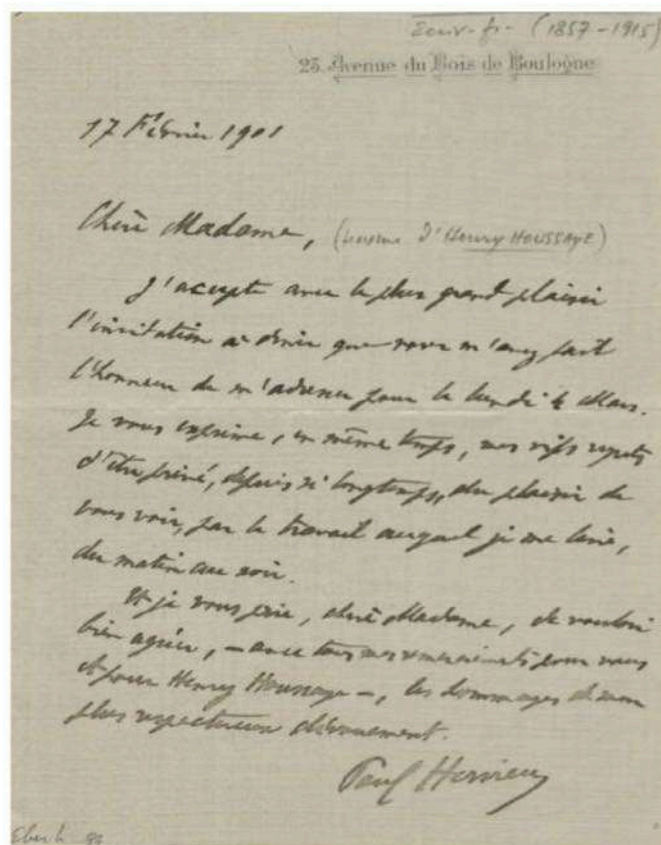 Ecriv. fr. (1857-1915)
23, Avenue du Bois de Boulogne
17 Février 1901
Chère Madame, (femme d'Henry HOUSSAYE)
J'accepte avec le plus grand plaisir
l'invitation à dîner que vous m'avez fait
l'honneur de m'adresser pour le lundi 4 Mars.
Je vous exprime, en même temps, mes vifs regrets
d'être privé, depuis si longtemps, du plaisir de
vous voir, par le travail auquel je me livre,
du matin au soir.
Et je vous prie, chère Madame, de vouloir
bien agréer, – avec tous mes remerciements pour vous
et pour Henry Houssaye –, les hommages de mon
plus respectueux dévouement.
Paul Hervieu